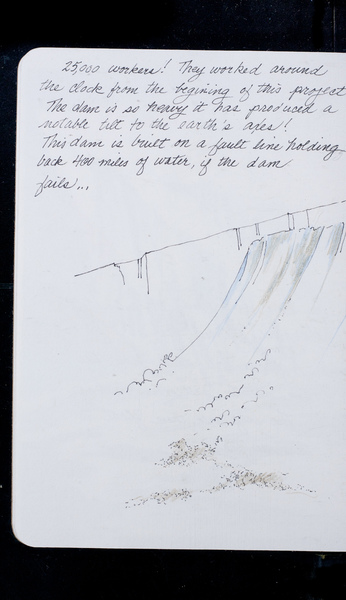 25,000 workers! They worked around
the clock from the begining of this project
The dam is so heavy it has produced a
notable tilt to the earth's axes!
This dam is built on a fault line holding
back 400 miles of water, if the dam
fails...